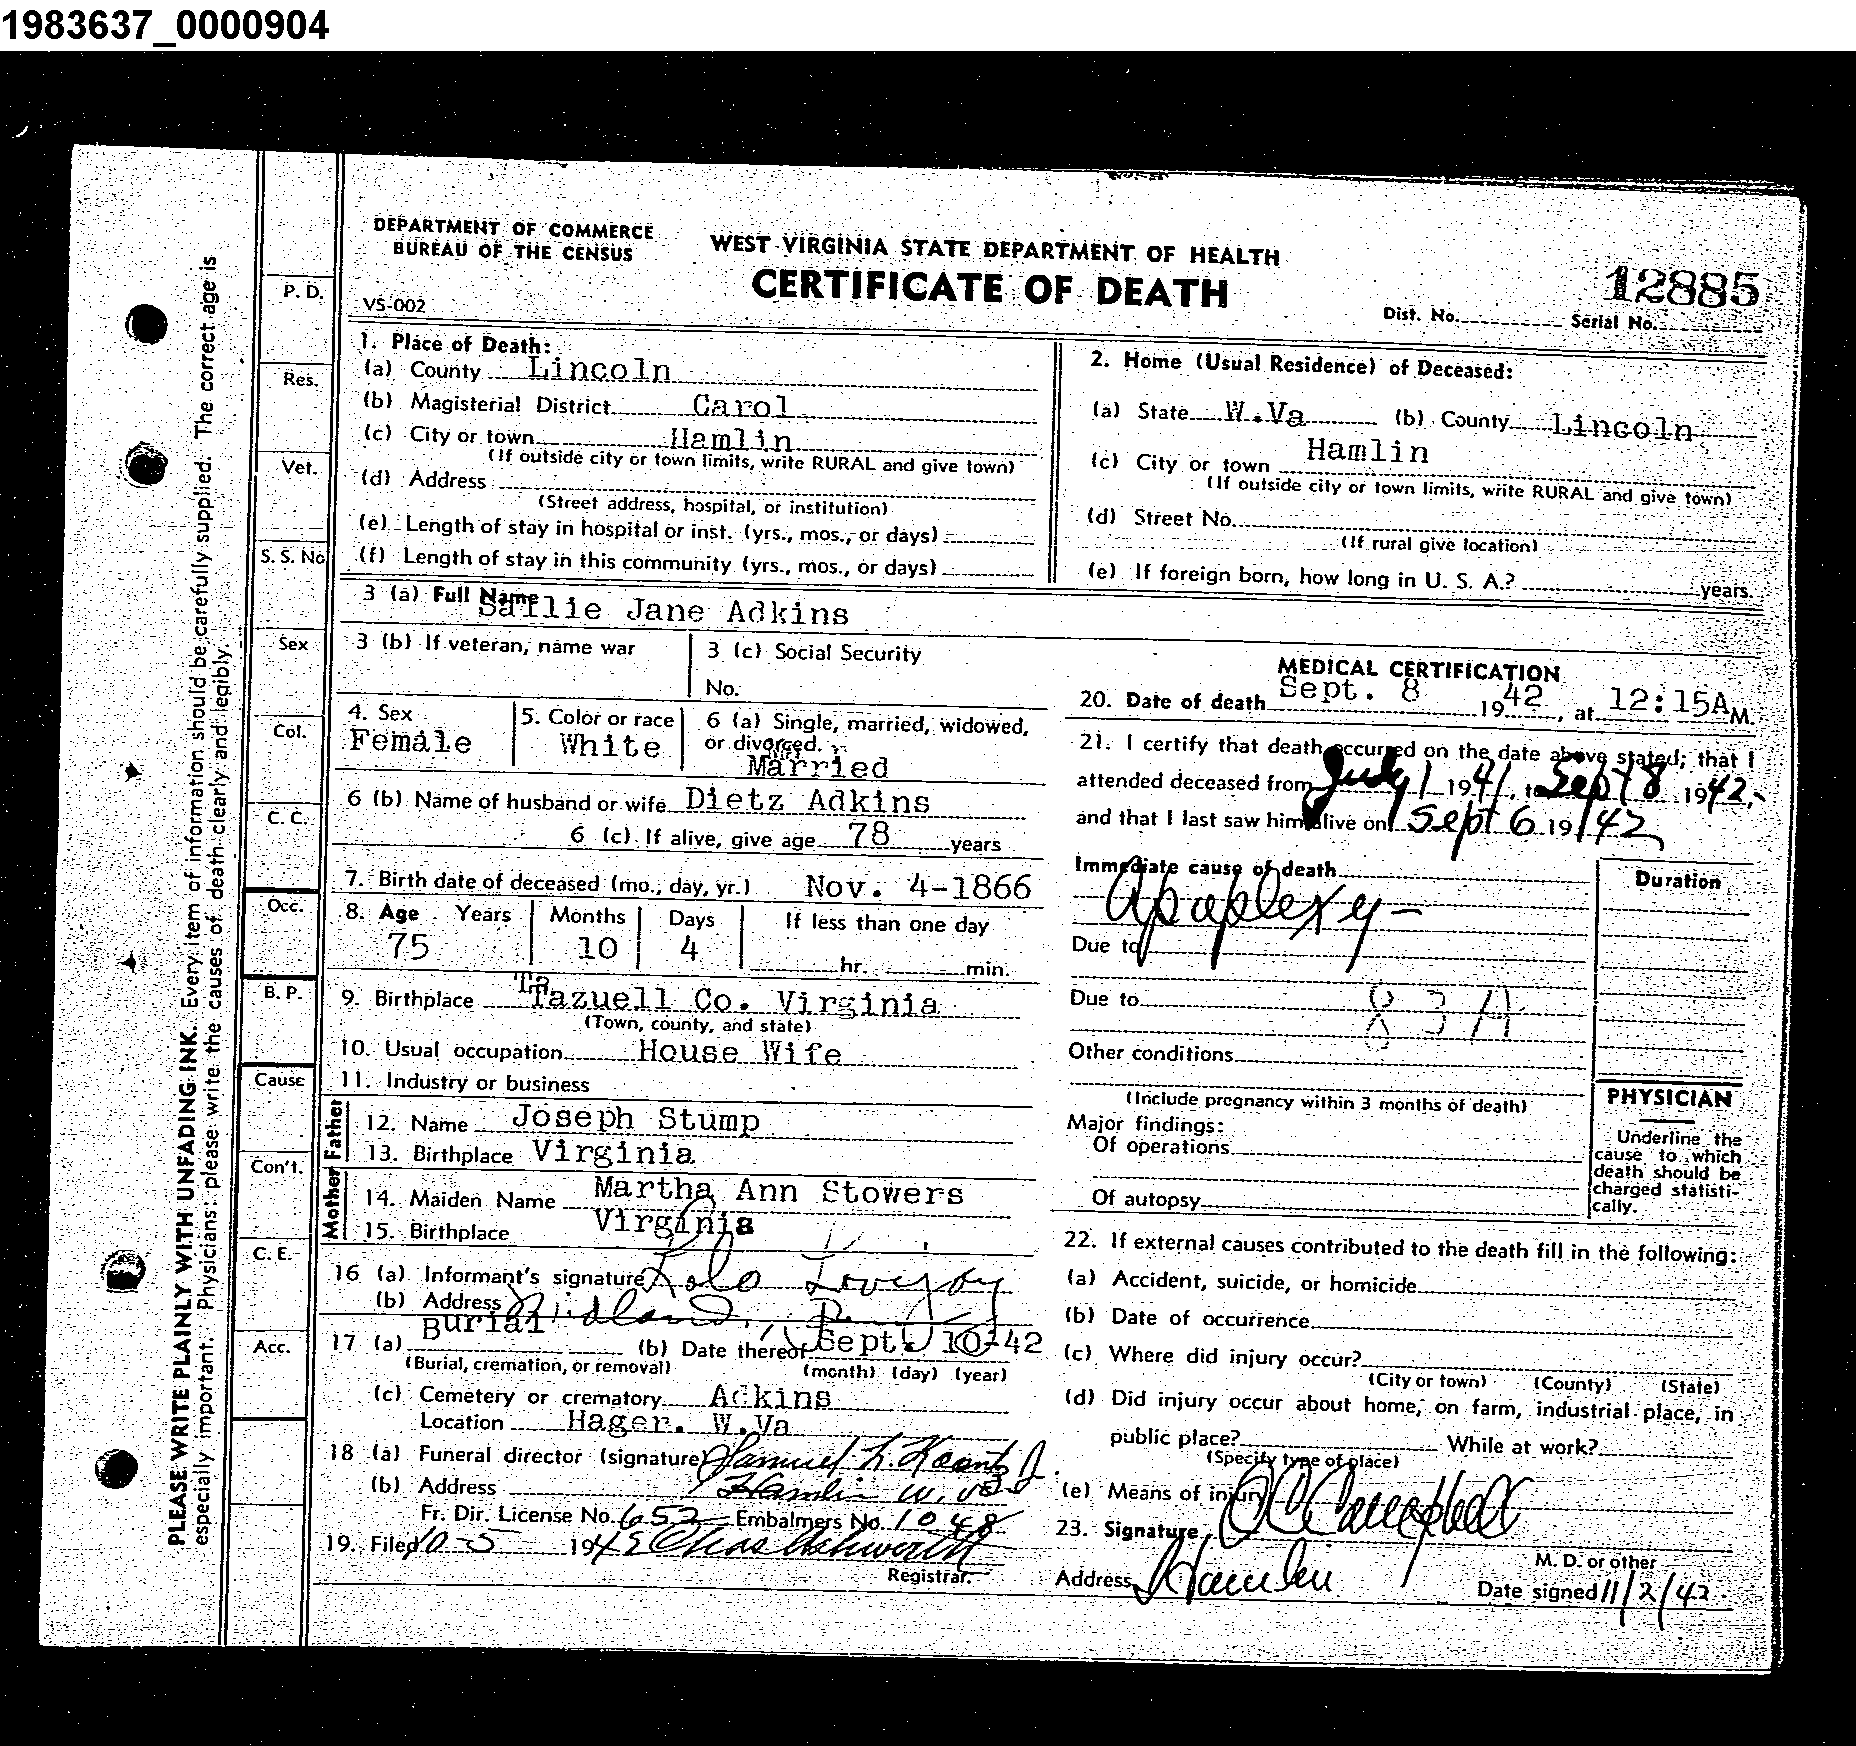 1983637_0000904
DEPARTMENT OF COMMERCE
BUREAU OF THE CENSUS
WEST VIRGINIA STATE DEPARTMENT OF HEALTH
CERTIFICATE OF DEATH
VS-002
12885
Dist. No. Serial No.
1. Place of Death:
(a) County Lincoln
(b) Magisterial District Carol
(c) City or town Hamlin
(If outside city or town limits, write RURAL and give town)
(d) Address
(Street address, hospital, or institution)
(e) Length of stay in hospital or inst. (yrs., mos., or days)
(f) Length of stay in this community (yrs., mos., or days)
2. Home (Usual Residence) of Deceased:
(a) State W.Va (b) County Lincoln
(c) City or town Hamlin
(If outside city or town limits, write RURAL and give town)
(d) Street No.
(If rural give location)
(e) If foreign born, how long in U. S. A.? years.
3 (a) Full Name Sallie Jane Adkins
3 (b) If veteran, name war
3 (c) Social Security
No.
4. Sex
Female
5. Color or race
White
6 (a) Single, married, widowed,
or divorced.
Married
6 (b) Name of husband or wife Dietz Adkins
6 (c) If alive, give age 78 years
7. Birth date of deceased (mo., day, yr.) Nov. 4-1866
8. Age Years Months Days If less than one day
75 10 4
hr. min.
9. Birthplace Tazuell Co. Virginia
(Town, county, and state)
10. Usual occupation House Wife
11. Industry or business
Father
12. Name Joseph Stump
13. Birthplace Virginia
Mother
14. Maiden Name Martha Ann Stowers
15. Birthplace Virginia
16 (a) Informant's signature Lovejoy
(b) Address Midland,
17 (a) Burial (b) Date thereof Sept. 10-42
(Burial, cremation, or removal) (month) (day) (year)
(c) Cemetery or crematory Adkins
Location Hager. W.Va
18 (a) Funeral director (signature) Samuel L. Koontz Jr.
(b) Address Hamlin W. Va
Fr. Dir. License No. 652 Embalmers No. 1048
19. Filed 10-5 1942 Chas Ashworth
Registrar.
MEDICAL CERTIFICATION
20. Date of death Sept. 8 1942, at 12:15A M.
21. I certify that death occurred on the date above stated; that I
attended deceased from July 1 1941, to Sept 8 1942,
and that I last saw him alive on Sept 6 19/42
Immediate cause of death
Apoplexy-
Duration
Due to
Due to 83A
Other conditions
(Include pregnancy within 3 months of death)
Major findings:
Of operations
Of autopsy
PHYSICIAN
Underline the
cause to which
death should be
charged statisti-
cally.
22. If external causes contributed to the death fill in the following:
(a) Accident, suicide, or homicide
(b) Date of occurrence
(c) Where did injury occur?
(City or town) (County) (State)
(d) Did injury occur about home, on farm, industrial place, in
public place? While at work?
(Specify type of place)
(e) Means of injury
23. Signature OC Campbell
M. D. or other
Address Hamlin Date signed 11/2/42
P. D.
Res.
Vet.
S. S. No
Sex
Col.
C. C.
Occ.
B. P.
Cause
Con't.
C. E.
Acc.
PLEASE WRITE PLAINLY WITH UNFADING INK. Every item of information should be carefully supplied. The correct age is
especially important. Physicians: please write the causes of death clearly and legibly.